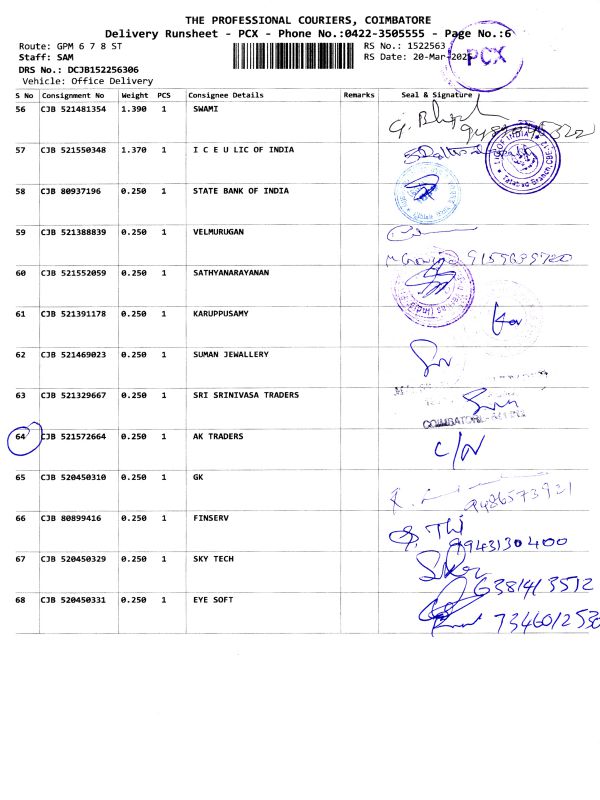 THE PROFESSIONAL COURIERS, COIMBATORE
Delivery Runsheet - PCX - Phone No.:0422-3505555 - Page No.:6
Route: GPM 6 7 8 ST
RS No.: 1522563
Staff: SAM
RS Date: 20-Mar-2025
PCX
DRS No.: DCJB152256306
Vehicle: Office Delivery
S No Consignment No Weight PCS Consignee Details Remarks Seal & Signature
56 CJB 521481354 1.390 1 SWAMI
57 CJB 521550348 1.370 1 I C E U LIC OF INDIA
58 CJB 80937196 0.250 1 STATE BANK OF INDIA
59 CJB 521388839 0.250 1 VELMURUGAN
9159699700
60 CJB 521552059 0.250 1 SATHYANARAYANAN
61 CJB 521391178 0.250 1 KARUPPUSAMY
62 CJB 521469023 0.250 1 SUMAN JEWALLERY
63 CJB 521329667 0.250 1 SRI SRINIVASA TRADERS
64 CJB 521572664 0.250 1 AK TRADERS C/N
65 CJB 520450310 0.250 1 GK
9486573921
66 CJB 80899416 0.250 1 FINSERV
9943130400
67 CJB 520450329 0.250 1 SKY TECH
6381413512
68 CJB 520450331 0.250 1 EYE SOFT
7346012530